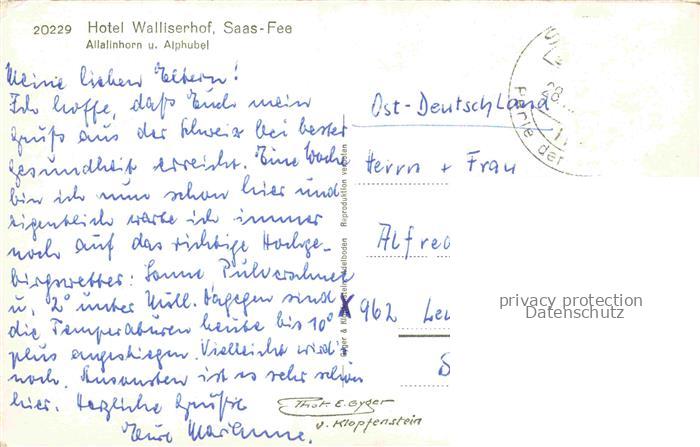 20229 Hotel Walliserhof, Saas-Fee
Allalinhorn u. Alphubel
Meine lieben Eltern!
Ich hoffe, daß Euch mein
Gruß aus der Schweiz bei bester
Gesundheit erreicht. Eine Woche
bin ich nun schon hier und
eigentlich warte ich immer
noch auf das richtige Hochge-
birgswetter: Sonne Pulverschnee
u. 2° unter Null. Dagegen sind
die Temperaturen heute bis 10°
plus angestiegen. Vielleicht wird's
noch. Ansonsten ist es sehr schön
hier. Herzliche Grüße
Eure Marianne.
Reproduktion verboten
Ost-Deutschland
Herrn + Frau
Alfred
X 962 Len
Perle der
privacy protection
Datenschutz
Phot. E. Gyger
u. Klopfenstein